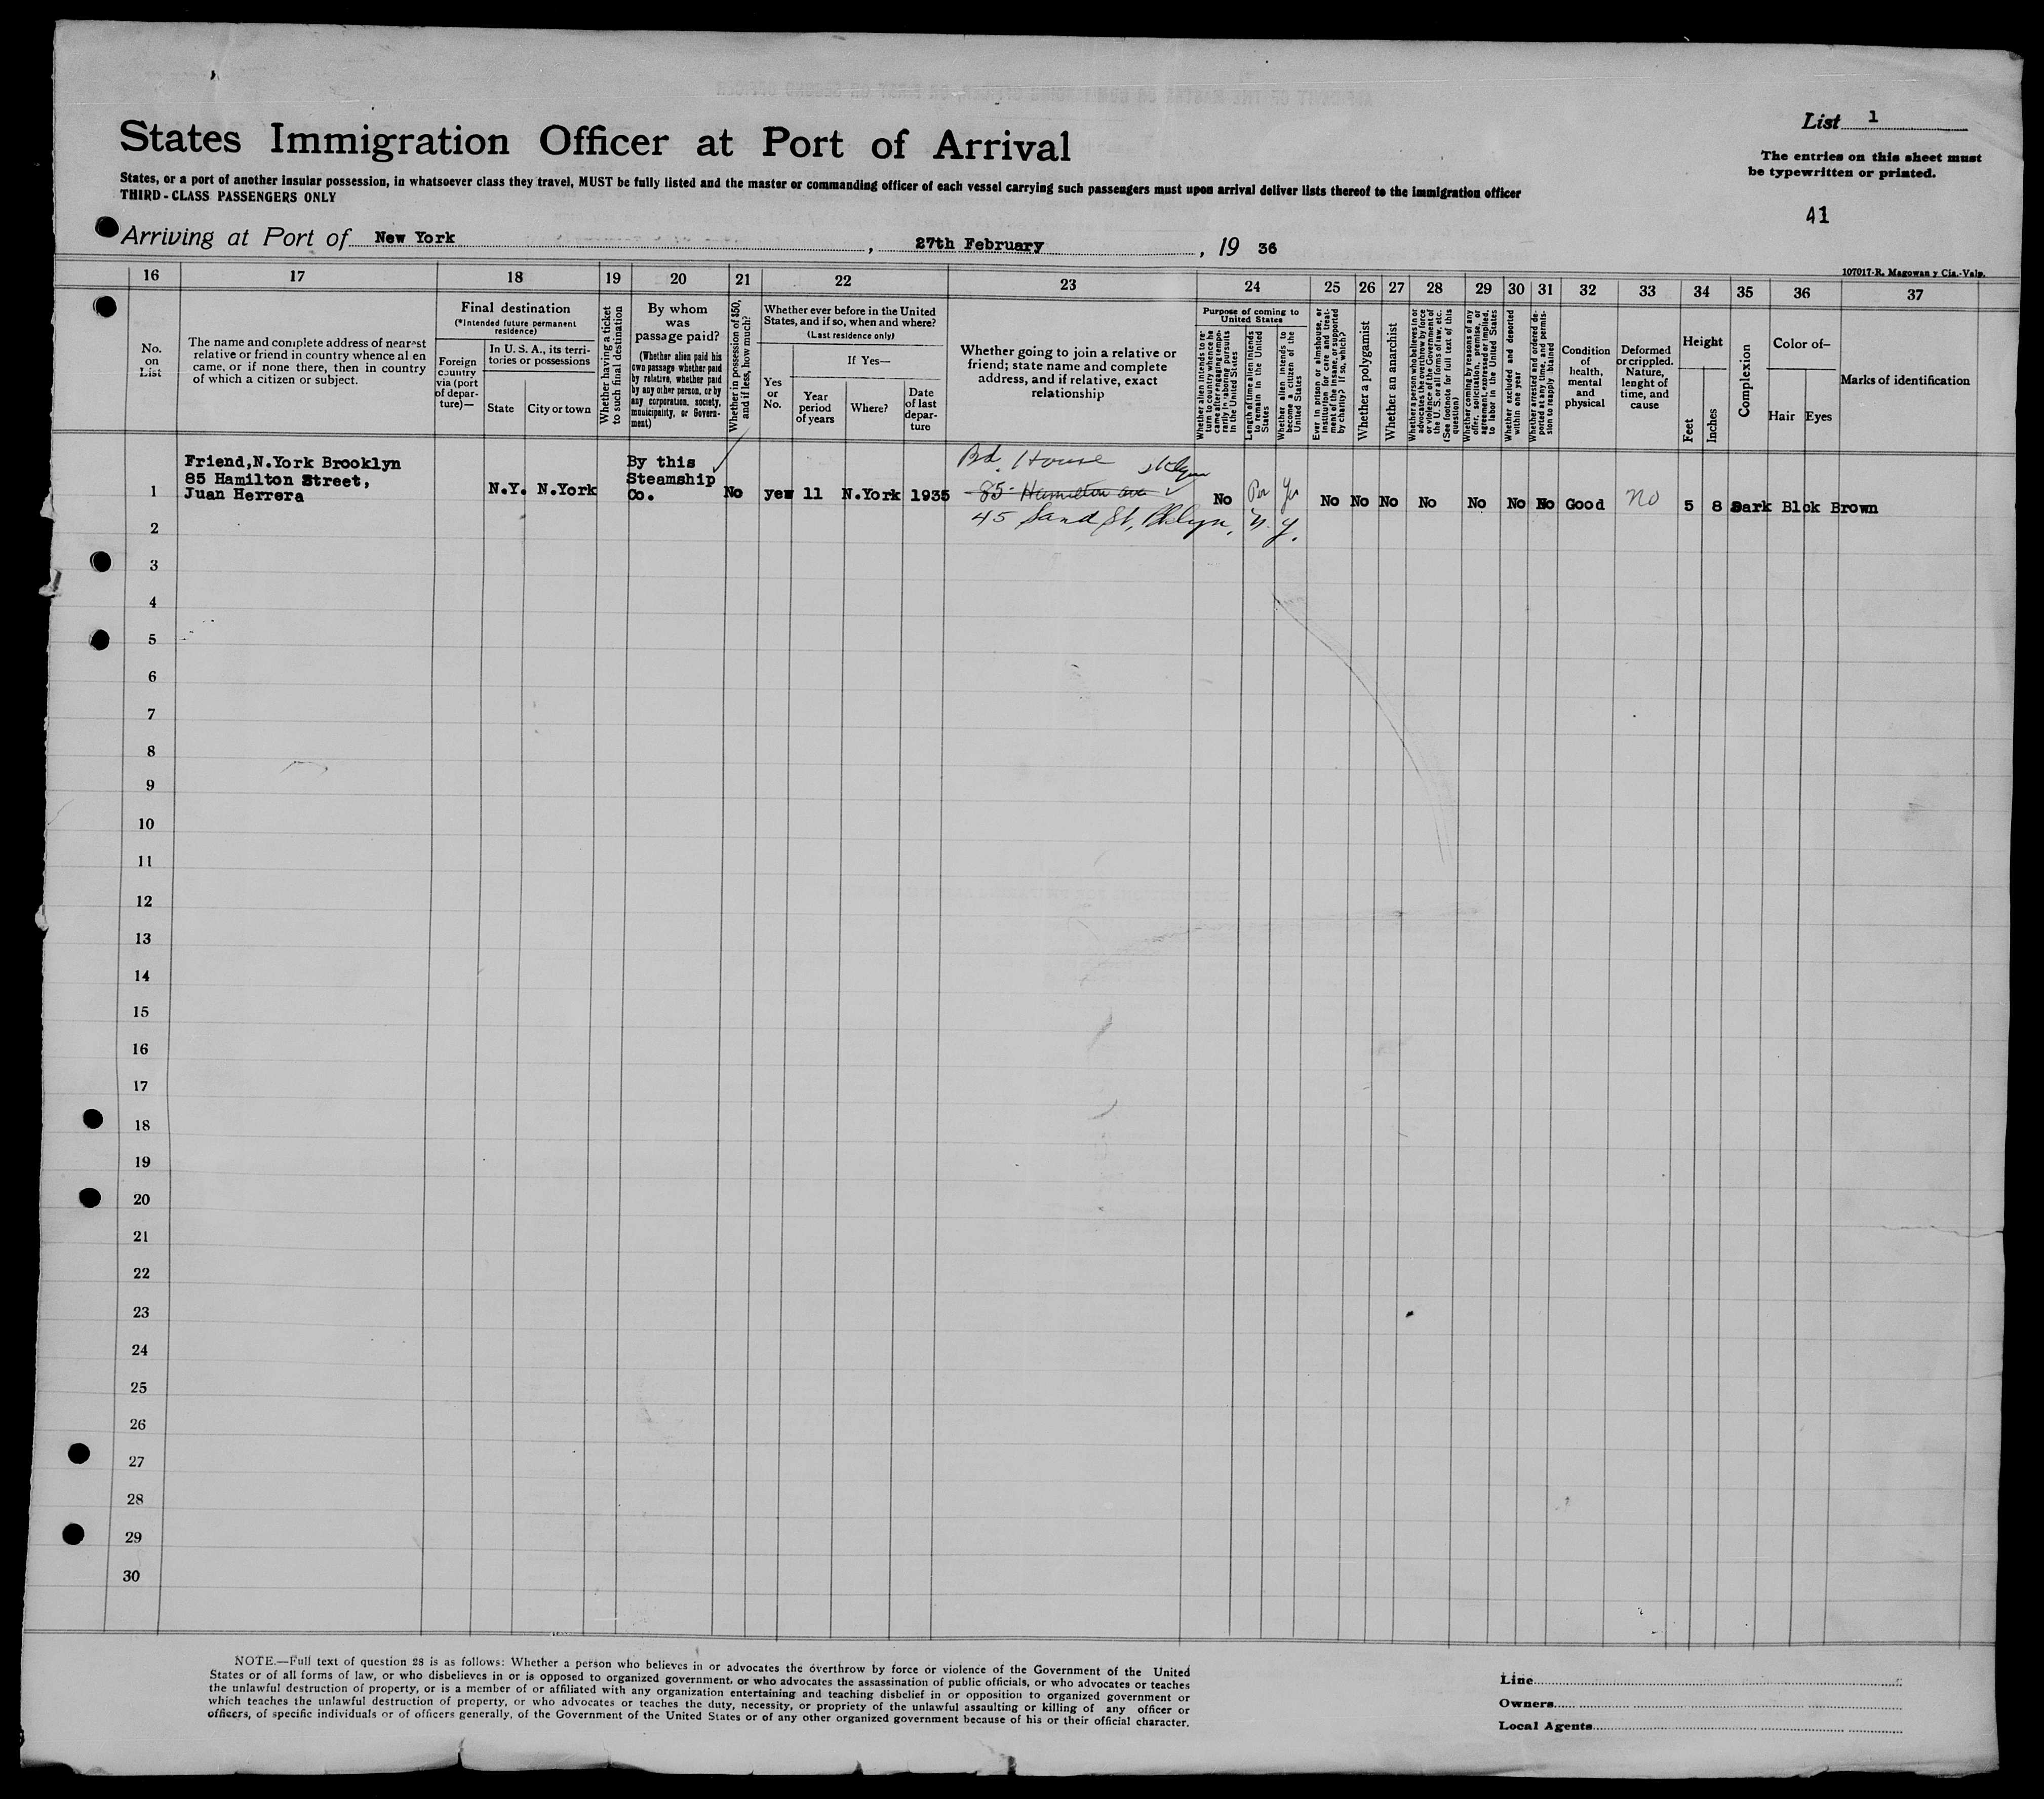 States Immigration Officer at Port of Arrival
List 1
The entries on this sheet must
be typewritten or printed.
States, or a port of another insular possession, in whatsoever class they travel, MUST be fully listed and the master or commanding officer of each vessel carrying such passengers must upon arrival deliver lists thereof to the immigration officer
THIRD-CLASS PASSENGERS ONLY
41
Arriving at Port of New York, 27th February, 19 36
107017-R. Magowan y Cia.-Valp.
16 17 18 19 20 21 22 23 24 25 26 27 28 29 30 31 32 33 34 35 36 37
No.
on
List
The name and complete address of nearest
relative or friend in country whence al en
came, or if none there, then in country
of which a citizen or subject.
Final destination
(*Intended future permanent
residence)
Foreign
country
via (port
of depar-
ture)—
In U. S. A., its terri-
tories or possessions
State
City or town
Whether having a ticket
to such final destination
By whom
was
passage paid?
(Whether alien paid his
own passage whether paid
by relative, whether paid
by any other person, or by
any corporation, society,
municipality, or Govern-
ment)
Whether in possession of $50,
and if less, how much?
Whether ever before in the United
States, and if so, when and where?
(Last residence only)
Yes
or
No.
If Yes—
Year
period
of years
Where?
Date
of last
depar-
ture
Whether going to join a relative or
friend; state name and complete
address, and if relative, exact
relationship
Purpose of coming to
United States
Whether alien intends to re-
turn to country whence he
came after engaging tempo-
rarily in laboring pursuits
in the United States
Length of time alien intends
to remain in the United
States
Whether alien intends to
become a citizen of the
United States
Ever in prison or almshouse, or
institution for care and treat-
ment of the insane, or supported
by charity? If so, which?
Whether a polygamist
Whether an anarchist
Whether a person who believes in or
advocates the overthrow by force
or violence of the Government of
the U. S. or all forms of law, etc.
(See footnote for full text of this
question)
Whether coming by reasons of any
offer, solicitation, promise, or
agreement, expressed or implied,
to labor in the United States
Whether excluded and deported
within one year
Whether arrested and ordered de-
ported at any time, and permis-
sion to reapply obtained
Condition
of
health,
mental
and
physical
Deformed
or crippled.
Nature,
lenght of
time, and
cause
Height
Feet
Inches
Complexion
Color of—
Hair
Eyes
Marks of identification
Friend,N.York Brooklyn
85 Hamilton Street,
Juan Herrera
N.Y. N.York
By this
Steamship
Co.
No yes 11 N.York 1935
Bd. House
85 Hamilton Ave
45 Sand St, Bklyn, N.Y.
No Per Yes No No No No No No No Good no 5 8 Dark Blck Brown
1
2
3
4
5
6
7
8
9
10
11
12
13
14
15
16
17
18
19
20
21
22
23
24
25
26
27
28
29
30
NOTE.—Full text of question 28 is as follows: Whether a person who believes in or advocates the overthrow by force or violence of the Government of the United
States or of all forms of law, or who disbelieves in or is opposed to organized government, or who advocates the assassination of public officials, or who advocates or teaches
the unlawful destruction of property, or is a member of or affiliated with any organization entertaining and teaching disbelief in or opposition to organized government or
which teaches the unlawful destruction of property, or who advocates or teaches the duty, necessity, or propriety of the unlawful assaulting or killing of any officer or
officers, of specific individuals or of officers generally, of the Government of the United States or of any other organized government because of his or their official character.
Line
Owners
Local Agents